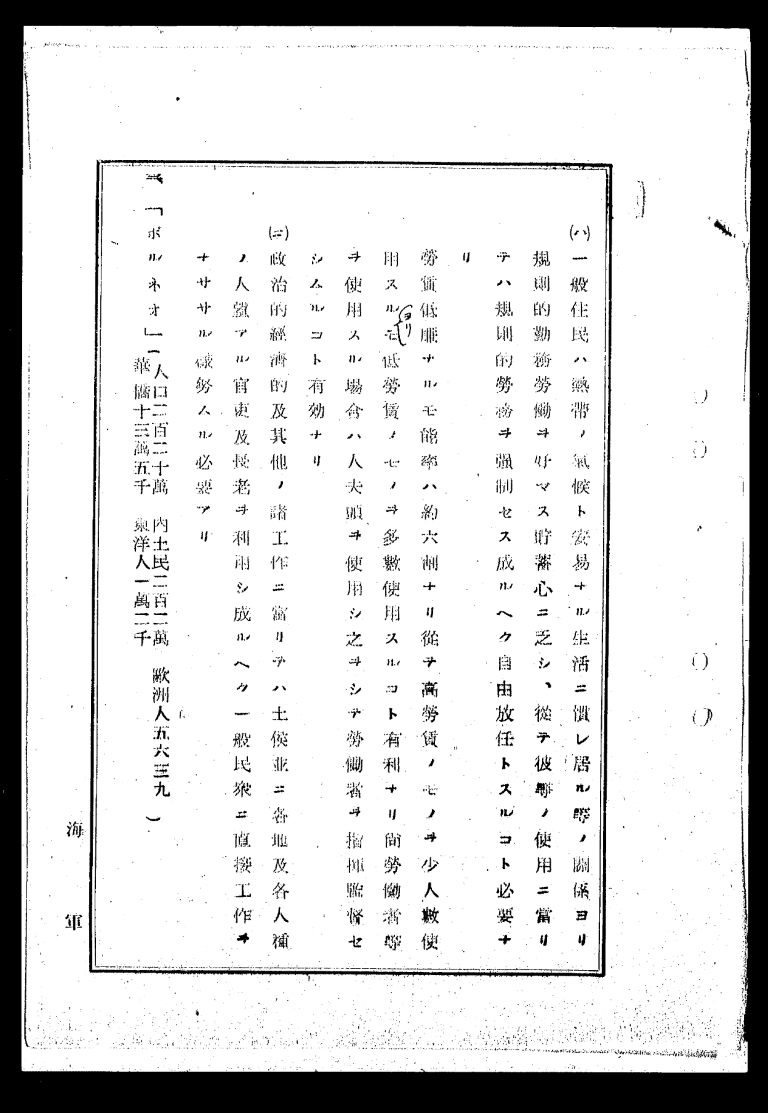 (ハ)一般住民ハ熱帶ノ氣候ト安易ナル生活ニ慣レ居ル等ノ關係ヨリ
規則的勤務勞働ヲ好マス貯蓄心ニ乏シ、從テ彼等ノ使用ニ當リ
テハ規則的勞務ヲ强制セス成ルヘク自由放任トスルコト必要ナ
リ
勞賃低廉ナルモ能率ハ約六割ナリ從テ高勞賃ノモノヲ少人數使
用スルモヨリ低勞賃ノモノヲ多數使用スルコト有利ナリ尙勞働者等
ヲ使用スル場合ハ人夫頭ヲ使用シ之ヲシテ勞働者ヲ指揮監督セ
シムルコト有効ナリ
(ニ)政治的經濟的及其他ノ諸工作ニ當リテハ土侯並ニ各地及各人種
ノ人望アル官吏及長老ヲ利用シ成ルヘク一般民衆ニ直接工作ヲ
ナササル樣努ムル必要アリ
「ボルネオ」(人口二百二十萬 內土民二百二萬 歐洲人五六三九
華僑十三萬五千 東洋人一萬二千)
海軍